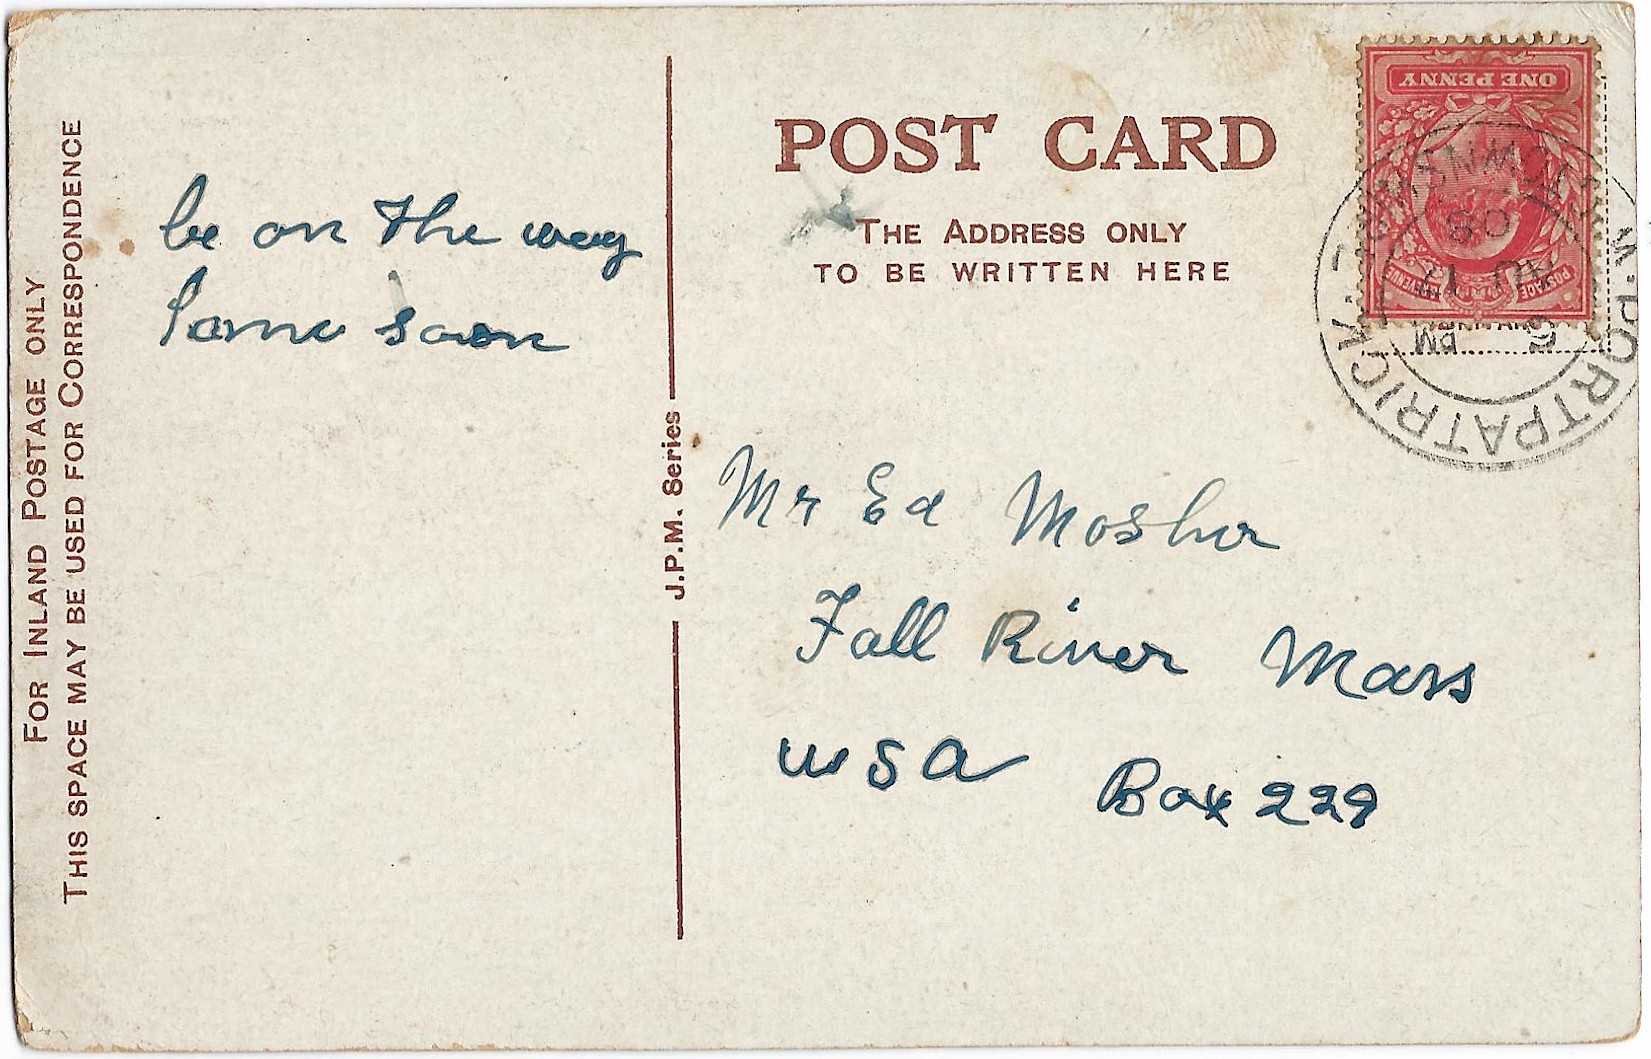 FOR INLAND POSTAGE ONLY
THIS SPACE MAY BE USED FOR CORRESPONDENCE
be on the way
home soon
J.P.M. Series
POST CARD
THE ADDRESS ONLY
TO BE WRITTEN HERE
ONE PENNY
POSTAGE REVENUE
PORTPATRICK
AU 17
08
PM
Mr Ed Mosher
Fall River Mass
USA Box 229